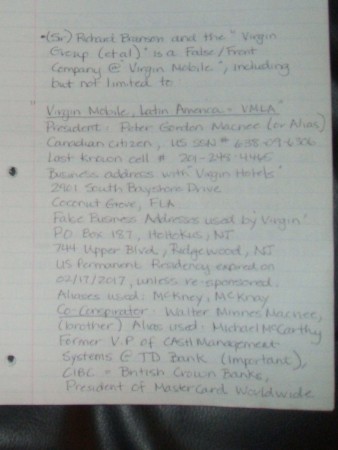 (Sir) Richard Branson and the "Virgin
Group (et al)" is a False/Front
Company @ "Virgin Mobile", including
but not limited to:
Virgin Mobile, Latin America - VMLA"
President: Peter Gordon Macnee (or Alias)
Canadian citizen, US SSN #
Last known cell #
Business address with "Virgin Hotels"
2901 South Bayshore Drive
Coconut Grove, FLA
False Business Addresses used by "Virgin"
P.O. Box 187, HoHoKus, NJ
744 Upper Blvd, Ridgewood, NJ
US Permanent Residency expired on
02/17/2017, unless re-sponsored.
Aliases used: McKney, McKnay
Co-Conspirator: Walter Minnes Macnee,
(brother) Alias used: Michael McCarthy
Former V.P. of CASH Management
Systems @ TD Bank (Important),
CIBC = British Crown Banks,
President of Mastercard Worldwide